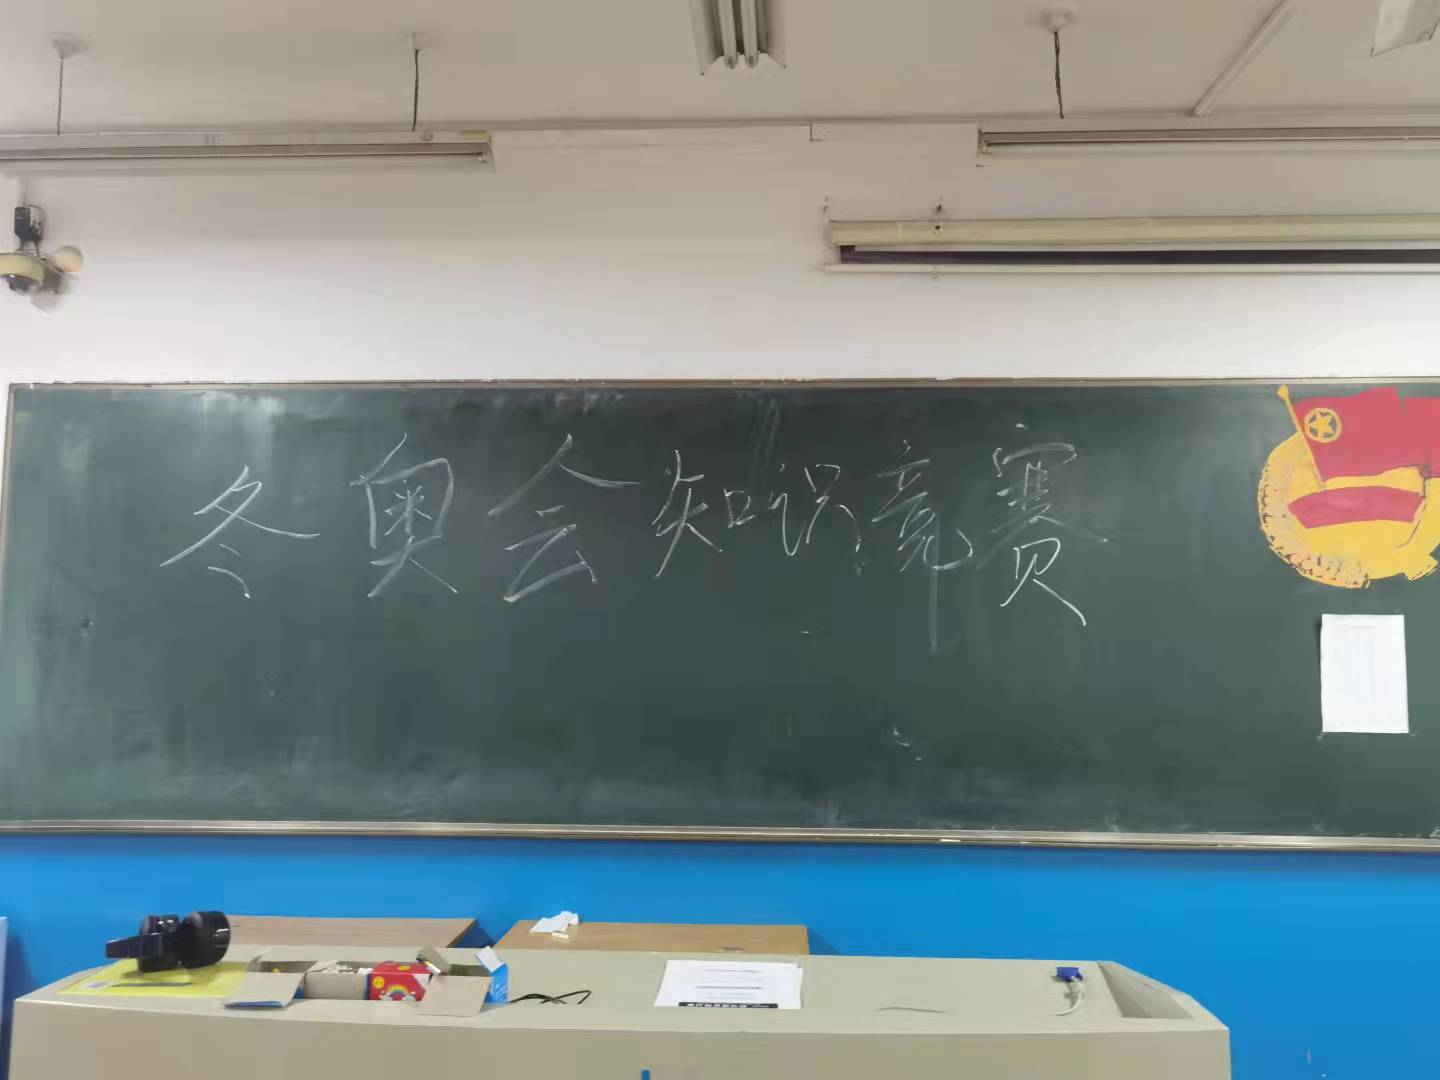 冬奥会知识竞赛